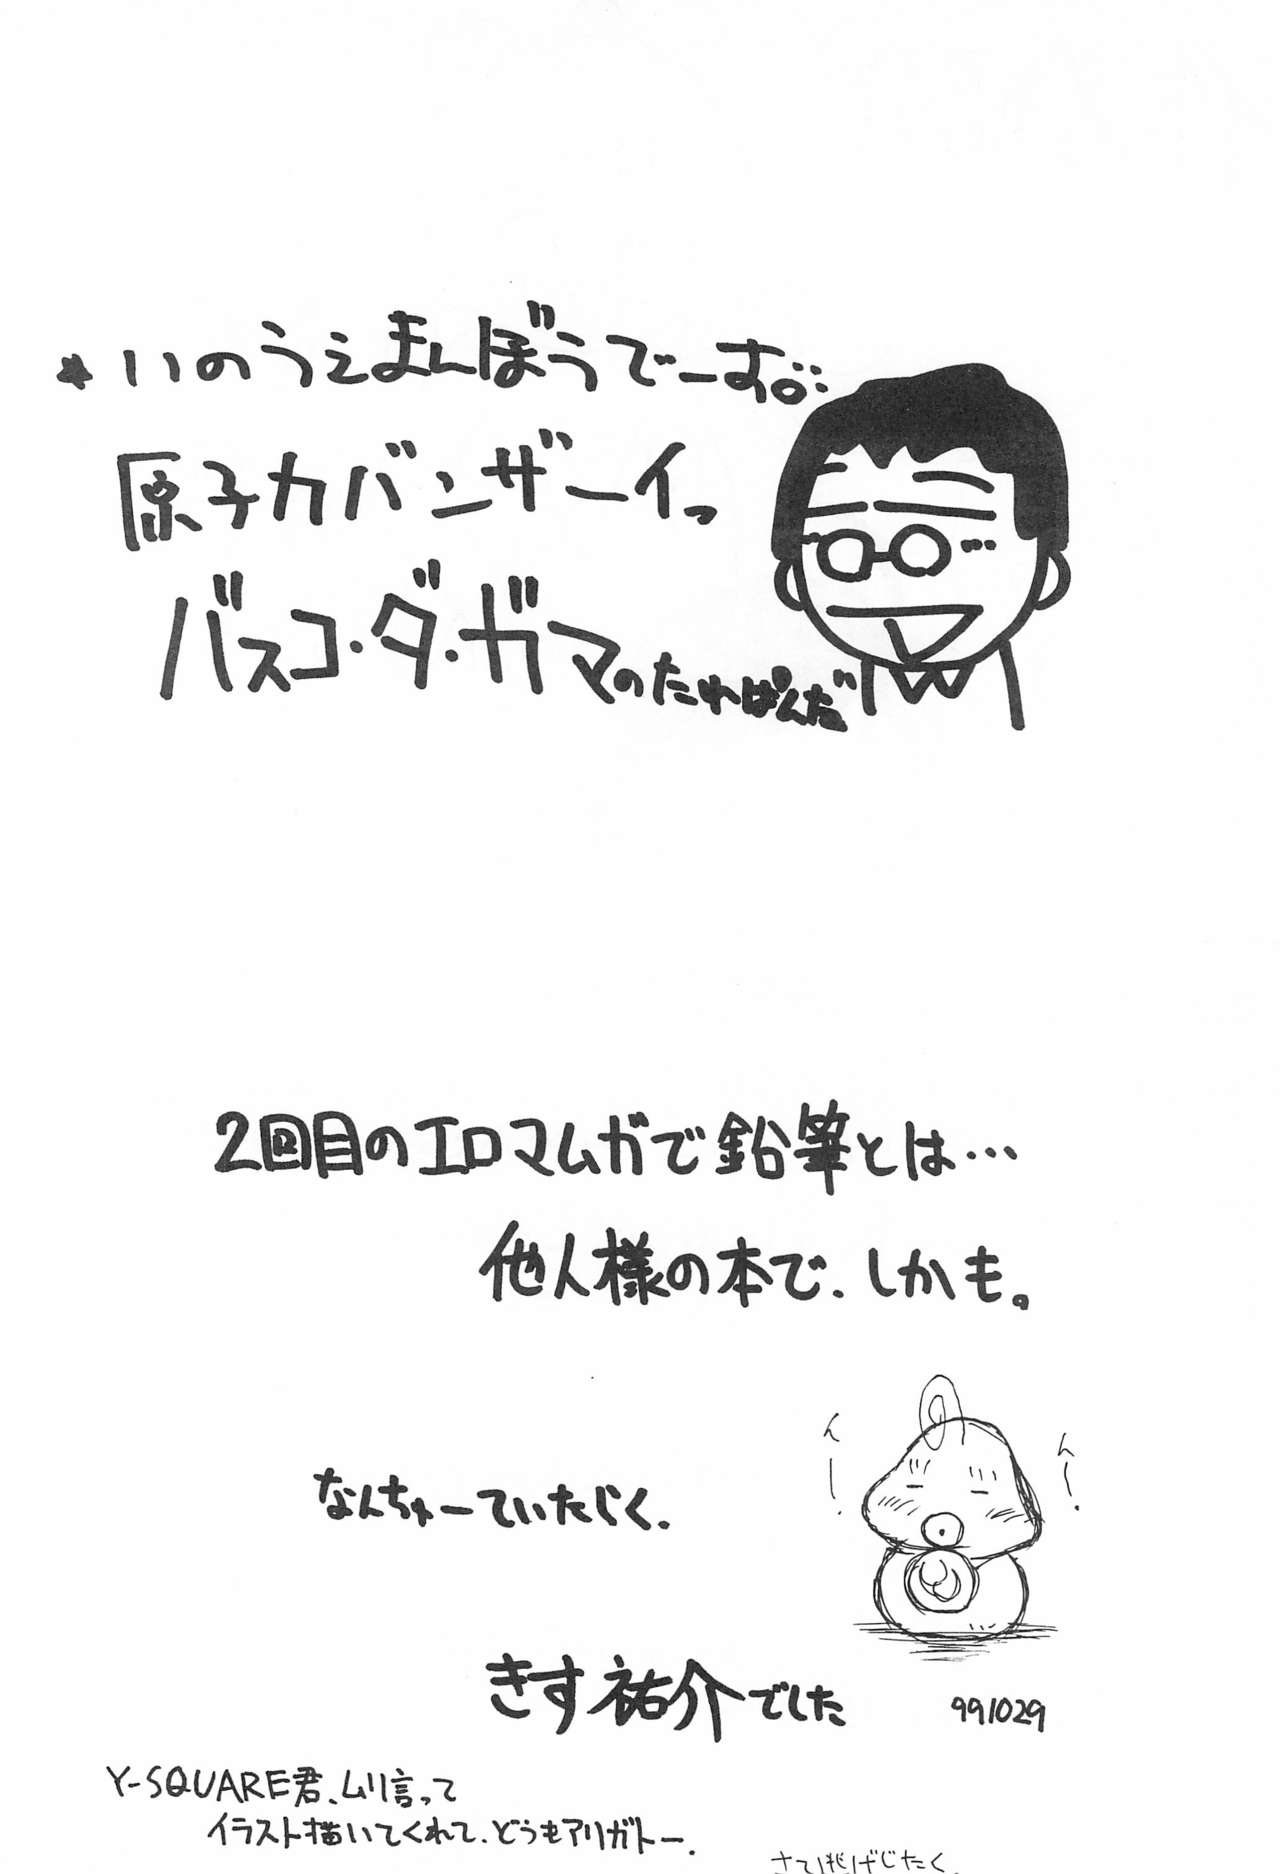 ★いのうえまんぼうでーす。
原子力バンザーイっ
バスコ・ダ・ガマのたれぱんだ
2回目のエロマムガで鉛筆とは…
他人様の本で、しかも。
んー! んー!
なんちゅーていたらく.
きす祐介でした
991029
Y-SQUARE君、ムリ言って
イラスト描いてくれて、どうもアリガトー.